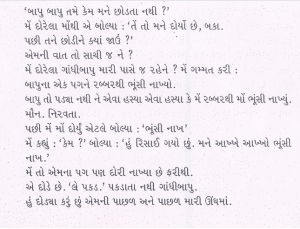 'બાપુ બાપુ તમે કેમ મને છોડતા નથી ?'
મેં દોરેલા મોંથી એ બોલ્યા : 'તેં તો મને દોર્યો છે, બકા.
પછી તને છોડીને ક્યાં જાઉં ?'
એમની વાત તો સાચી જ ને ?
મેં દોરેલા ગાંધીબાપુ મારી પાસે જ રહેને ? મેં ગમ્મત કરી :
બાપુના એક પગને રબ્બરથી ભૂંસી નાખ્યો.
બાપુ તો પડ્યા નથી ને એવા હસ્યા એવા હસ્યા કે મેં રબ્બરથી મોં ભૂંસી નાખ્યું.
મૌન. નિરવતા.
પછી મેં મોં દોર્યું એટલે બોલ્યા : 'ભૂંસી નાખ'
મેં કહ્યું : 'કેમ ?' બોલ્યા : 'હું રિસાઈ ગયો છું. મને આખ્ખે આખ્ખો ભૂંસી
નાખ.'
મેં તો એમના પગ પણ દોરી નાખ્યા છે ફરીથી.
એ દોડે છે. 'લે પકડ.' પકડાતા નથી ગાંધીબાપુ.
હું દોડ્યા કરું છું એમની પાછળ અને પાછળ મારી ઊંઘમાં.